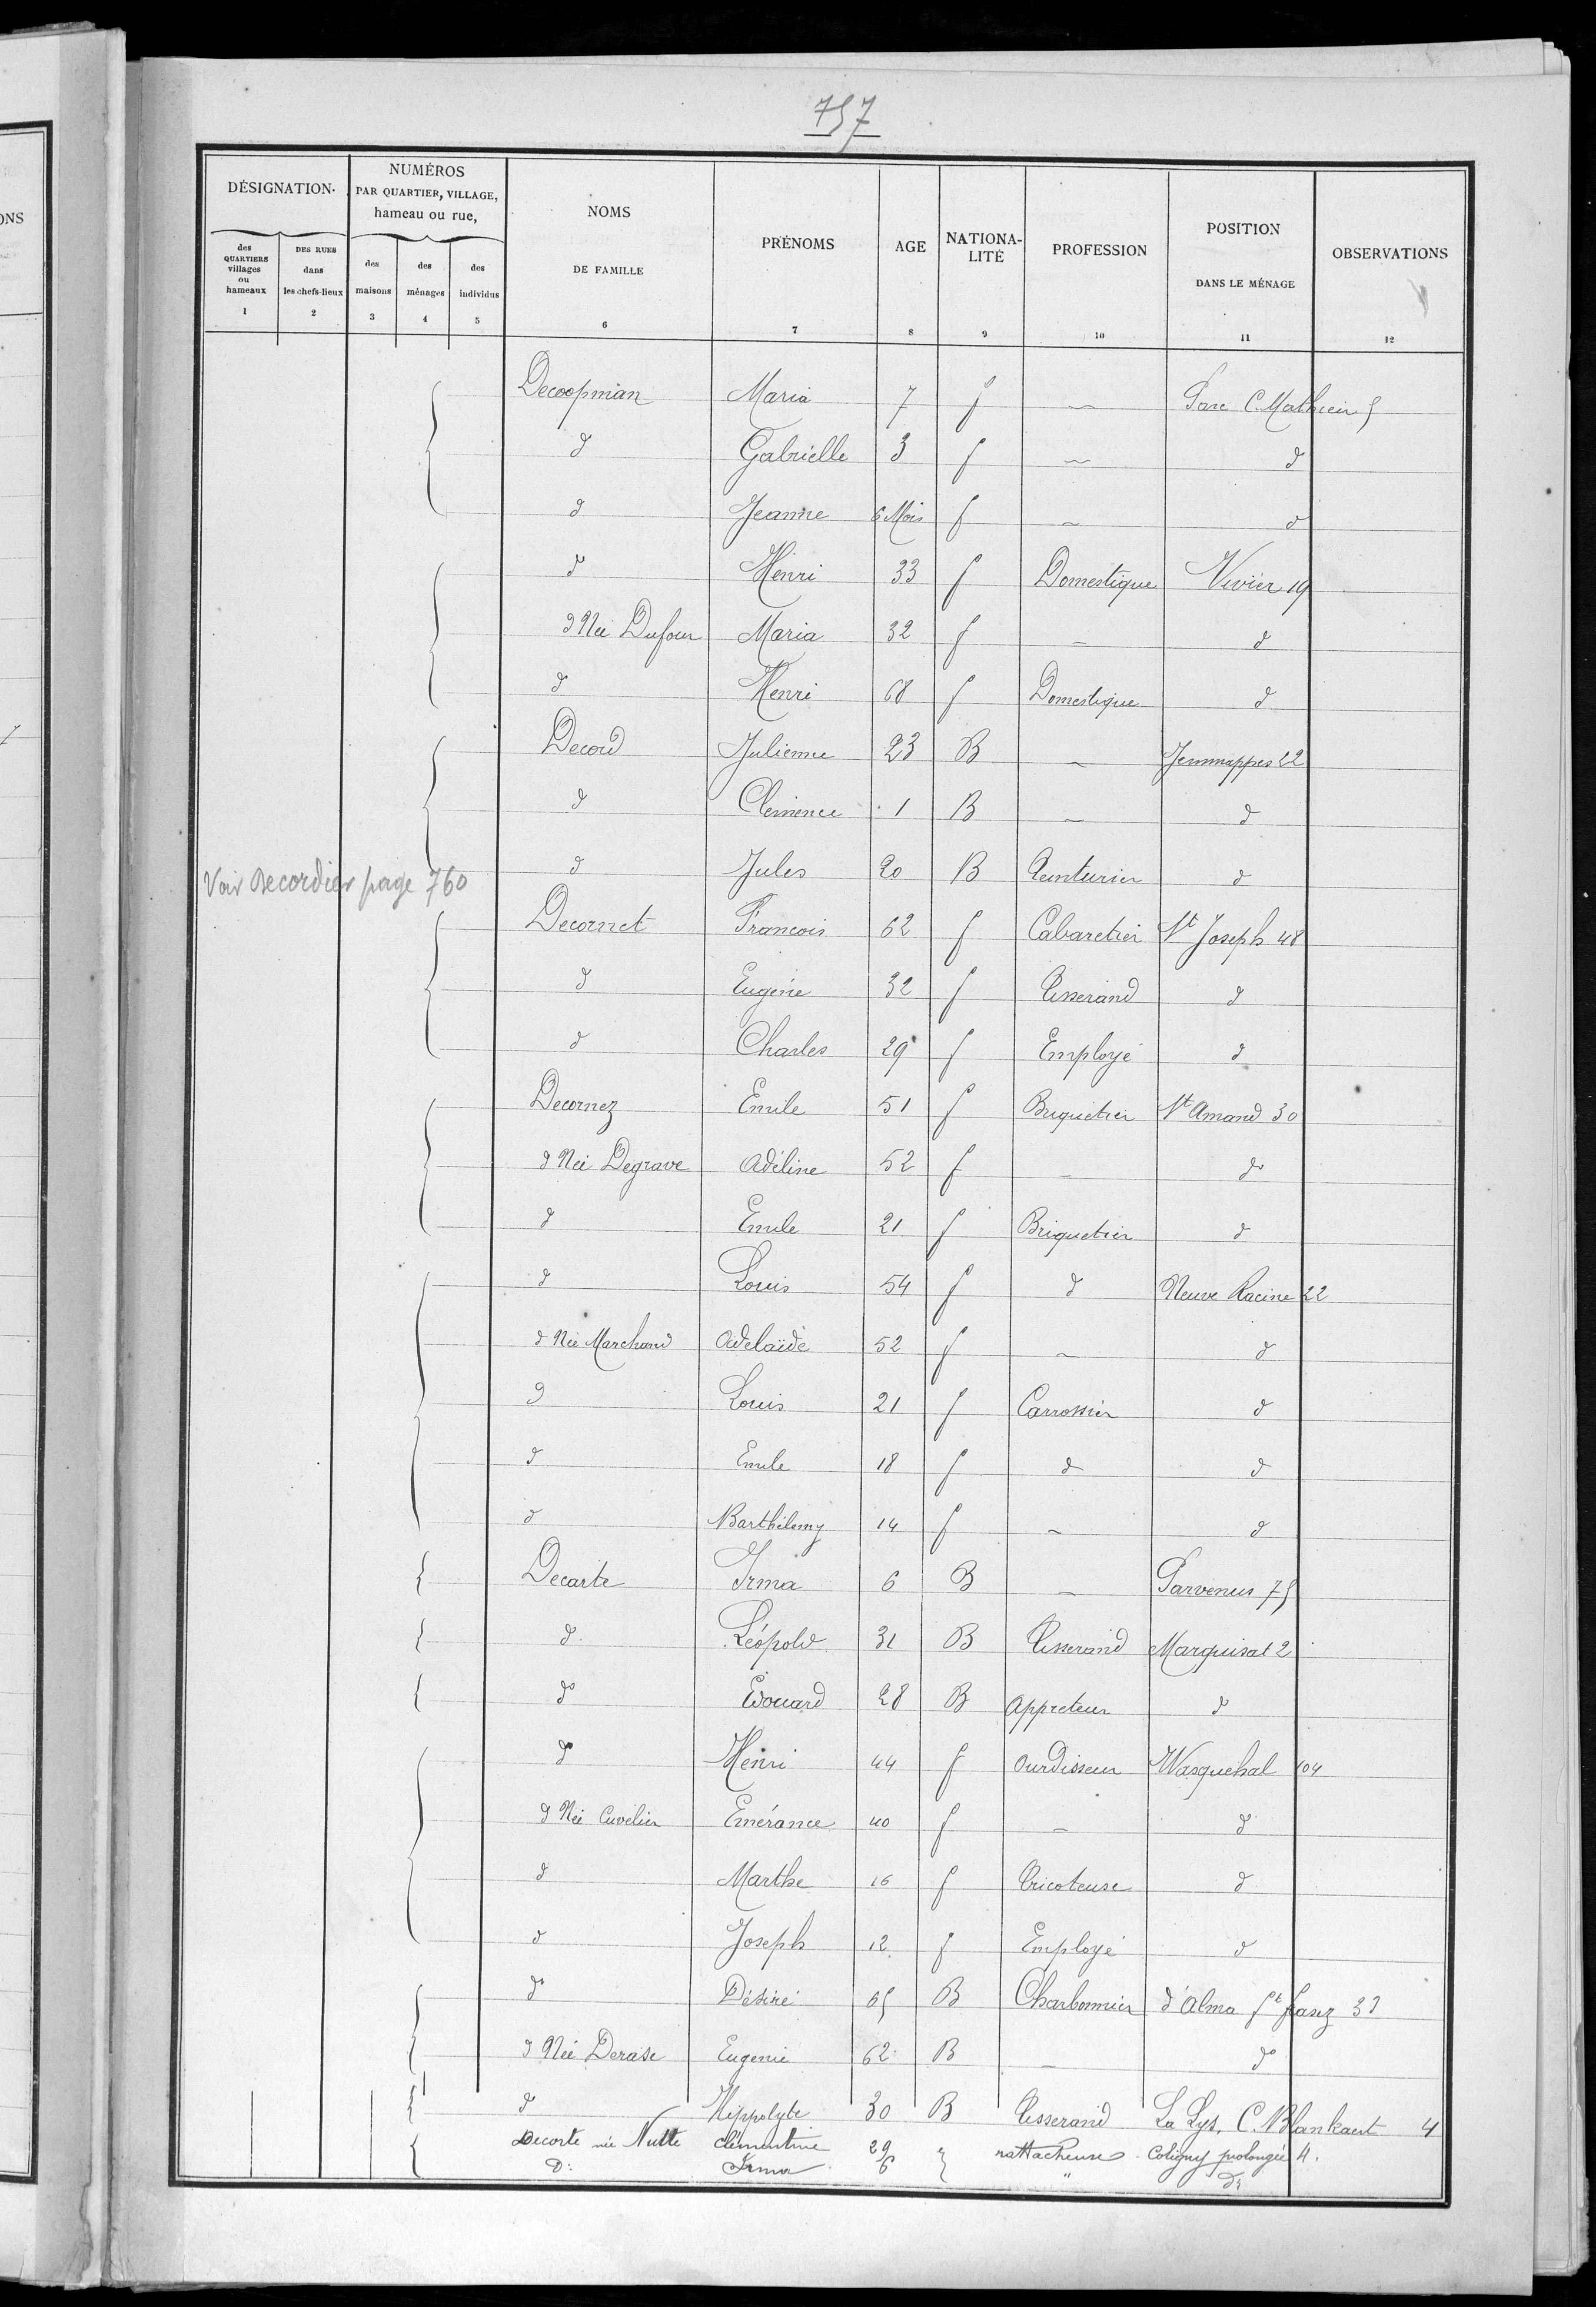 757
DÉSIGNATION.
NUMÉROS
PAR QUARTIER, VILLAGE,
hameau ou rue,
NOMS
DE FAMILLE
PRÉNOMS
AGE
NATIONA-
LITÉ
PROFESSION
POSITION
DANS LE MÉNAGE
OBSERVATIONS
des QUARTIERS villages ou hameaux
DES RUES dans les chefs-lieux
des maisons
des ménages
des individus
1 2 3 4 5 6 7 8 9 10 11 12
Decoopman Maria 7 f — Parc C. Mathieu 5
d Gabrielle 3 f — d
d Jeanne 6 Mois f — d
d° Henri 33 f Domestique Vivier 19
d Née Dufour Maria 32 f — d
d° Henri 68 f Domestique d
Decord Julienne 23 B — Jemmappes 22
d Clemence 1 B — d
d Jules 20 B Teinturier d
Voir Decordier page 760
Decornet Francois 62 f Cabaretier St Joseph 48
d Eugénie 32 f Tisserand d
d Charles 29 f Employé d
Decornez Emile 51 f Briquetier St Amand 30
d Née Degrave Adéline 52 f — d°
d Emile 21 f Briquetier d
d Louis 54 f d Neuve Racine 22
d Née Marchand Adelaïde 52 f — d
d Louis 21 f Carrossier d
d Emile 18 f d d
d Barthélemy 14 f — d
Decarte Irma 6 B — Parvenus 75
d Léopold 31 B Tisserand Marquisat 2
d° Edouard 28 B Appreteur d°
d° Henri 44 f Ourdisseur Wasquehal 104
d Née Cuvelier Emérance 40 f — d
d Marthe 16 f Tricoteuse d
d Joseph 12 f Employé d
d° Désiré 65 B Charbonnier d'Alma ft 33
d Née Derase Eugenie 62 B — d°
d° Hippolyte 30 B Tisserand La Lys, C. Blankaert 4
Decorte née Nutte Clementine 29 rattacheuse Coligny prolongée 4.
D: Irma 6 " D: